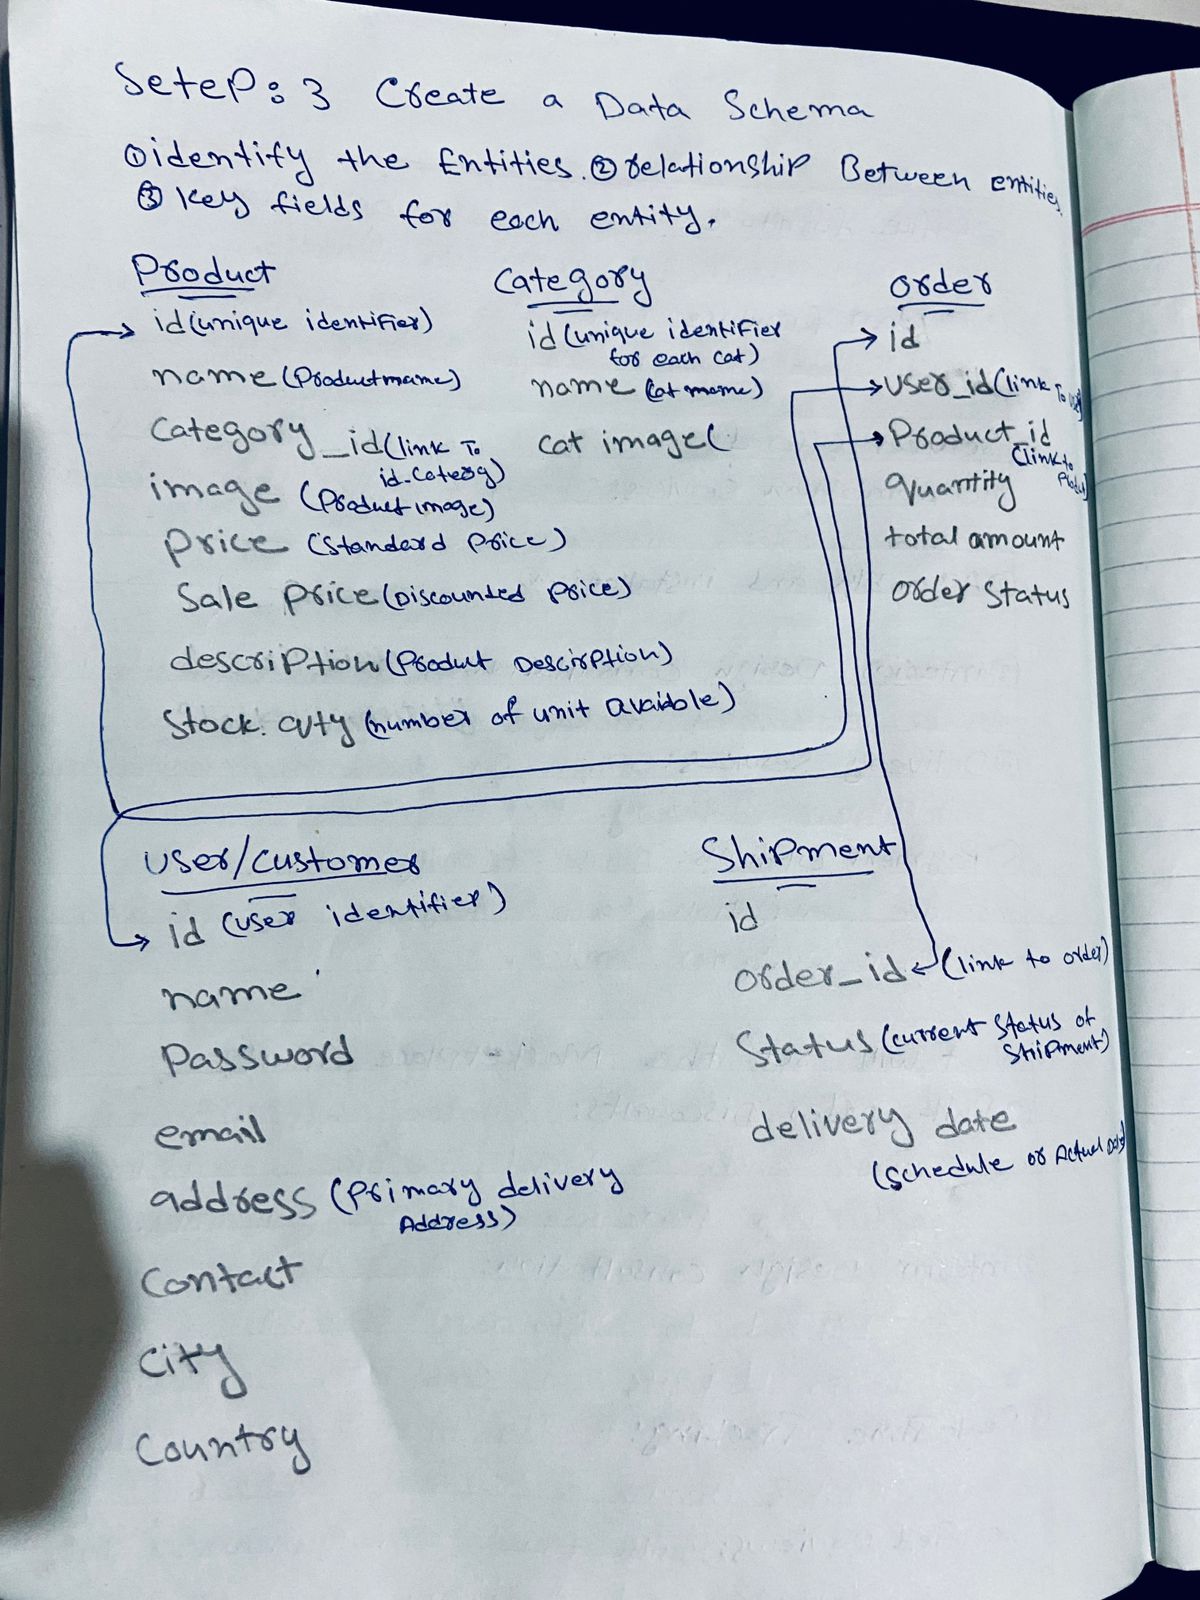 SeteP: 3 Create a Data Schema
① identify the Entities. ② relationship Between entities.
③ Key fields for each entity.
Product
id (unique identifier)
name (Product name)
Category_id (link To
id-Caterg)
image (Product image)
Price (Standard Price)
Sale Price (Discounted Price)
description (Product Descirption)
Stock. Qyty (number of unit avaible)
Category
id (unique identifier
for each cat)
name (cat name)
cat image (
order
id
user_id (link To user)
Product_id
(link to
Product)
quantity
total amount
Order Status
User/Customer
id (user identifier)
name
Password
email
address (Primary delivery
Address)
Contact
City
Country
Shipment
id
order_id (link to order)
Status (current Status of
Shipment)
delivery date
(Schedule or Actual Date)